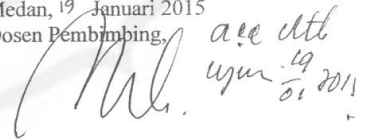 Medan, 19 Januari 2015
Dosen Pembimbing,
acc utk
ujian 19
01 2015